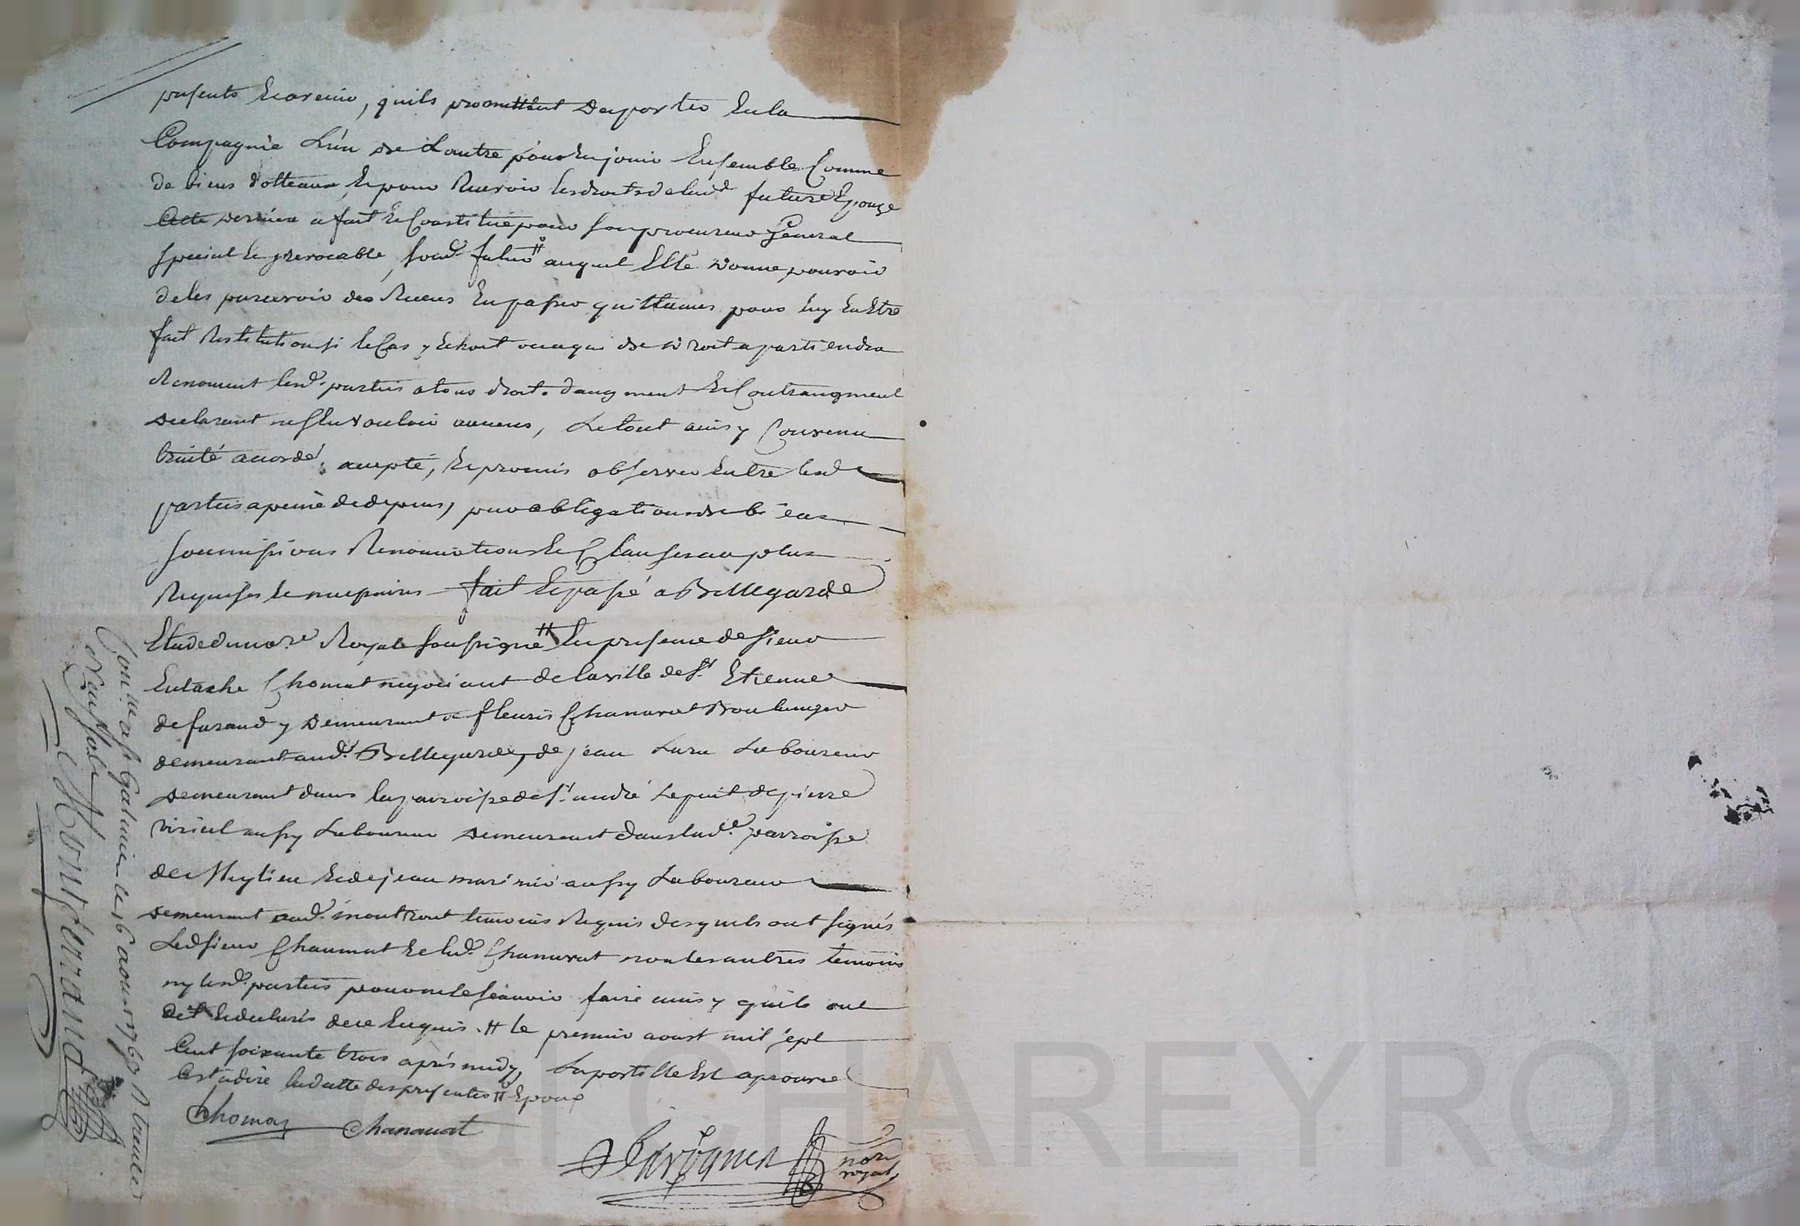 presents et avenir, quils promettent daporter en la
Compagnie L'un de L'autre pour en jouir Ensemble Comme
de biens dotteaux, Et pour Recevoir les droits de lad.e future Epouze
Cette derniere a fait et Constitué pour son procureur general
special et irrevocable, sond. futur # auquel Elle donne pouvoir
de les percevoir des Reçus En passer quittances pour luy En Etre
fait Restitution si le Cas y Echoit ou a qui de droit apartiendra
Renoncent lesd. parties a tous droits daugment et Contraugment
declarant nesleu vouloir aucuns, Le tout ainsy Convenu
traité accordé, accepté, Et promis observer Entre lesd.
parties a peine de depens, par obligations de biens
soumissions Renonciations et Clauses au plus
Requises et necessaires fait Et passé a Bellegarde
Etude du no.re Royale soussigné # En presence de sieur
Eutache Chomat negociant de la ville de S.t Etienne
de furand y demeurant de fleuris Chanavat Boulanger
demeurant aud. Bellegarde, de jean Lura Laboureur
demeurant dans la parroisse de S.t andré Lepuit de pierre
viricel aussy Laboureur demeurant dans lad.e parroisse
de Meylieu Et de jean marinié aussy Laboureur
demeurant aud. montrond temoins Requis desquels ont signés
Led. sieur Chaumat et led. Chanavat non les autres temoins
ny lesd. parties pour ne le sçavoir faire ainsy quils ont
dit et declarés de ce Enquis. # le premier aoust mil sept
Cent soixante trois après midy, La postille Est aprouvée
Cest a dire la datte des presentes # Epoux
Chomat
Chanavat
nore
royal
Con.lle a S.t Galmier le 16 aoust 1763 R
Montferrand
JOJI CHAREYRON